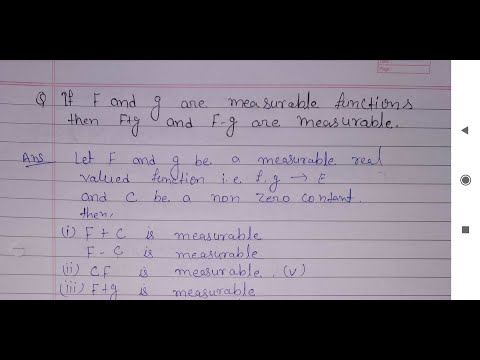 Q If F and g are measurable functions
then F+g and F-g are measurable.
Ans Let F and g be a measurable real
valued function i.e f, g → E
and C be a non zero contant.
then,
(i) F + C is measurable
F - C is measurable
(ii) CF is measurable. (v)
(iii) F+g is measurable